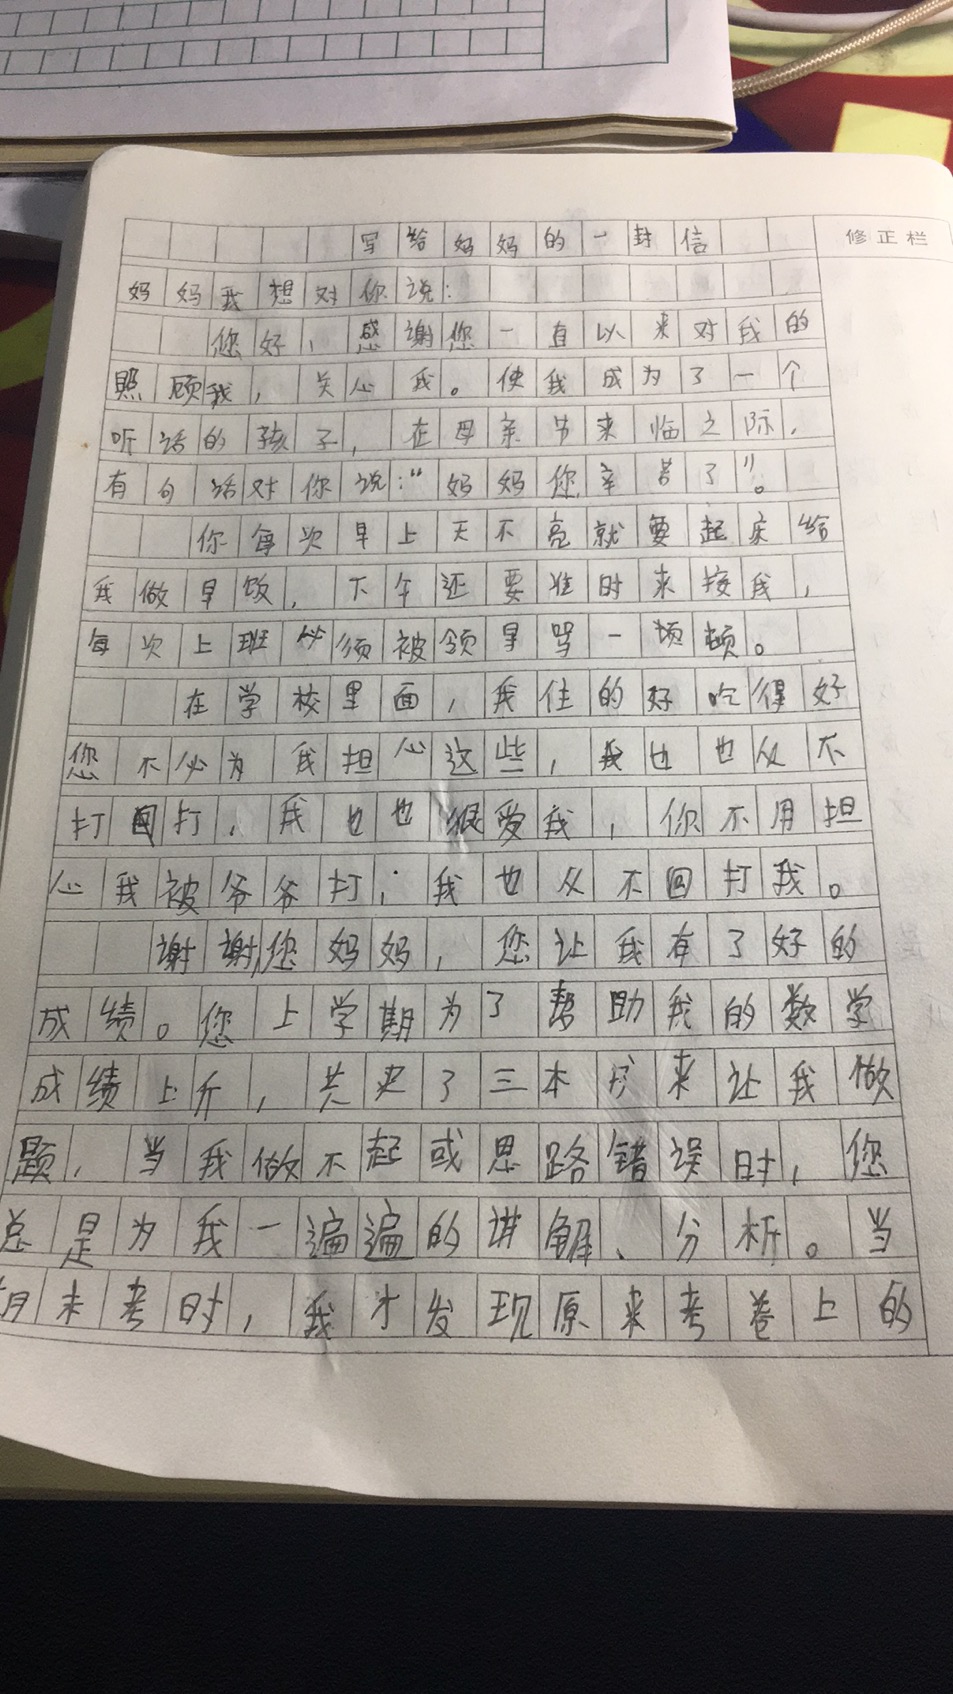 写给妈妈的一封信
修正栏
妈妈我想对你说:
您好,感谢您一直以来对我的
照顾我,关心我。使我成为了一个
听话的孩子,在母亲节来临之际,
有句话对你说:“妈妈您辛苦了”。
你每次早上天不亮就要起床给
我做早饭,下午还要准时来接我,
每次上班必须被领导骂一顿顿。
在学校里面,我住的好吃得好
您不必为我担心这些,我也也从不
打回打,我也也很爱我,你不用担
心我被爷爷打;我也从不回打我。
谢谢您妈妈,您让我有了好的
成绩。您上学期为了帮助我的数学
成绩上升,共买了三本书来让我做
题,当我做不起或思路错误时,您
总是为我一遍遍的讲解、分析。当
期末考时,我才发现原来考卷上的